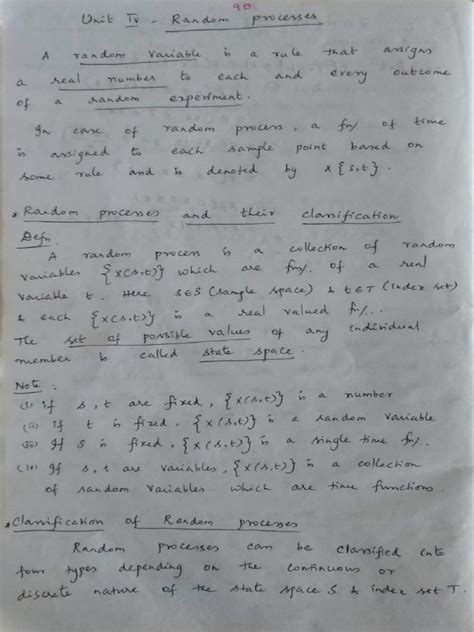 90
Unit IV - Random processes
A random variable is a rule that assigns
a real number to each and every outcome
of a random experiment.
In case of random process, a fn/. of time
is assigned to each sample point based on
some rule and is denoted by X{s,t}.
* Random processes and their classification
Defn.
A random process is a collection of random
variables {x(s,t)} which are fn/. of a real
variable t. Here s∈S (sample space) & t∈T (index set)
& each {x(s,t)} is a real valued fn/..
The set of possible values of any individual
member is called state space.
Note :
(i) if s,t are fixed, {x(s,t)} is a number
(ii) if t is fixed, {x(s,t)} is a random variable
(iii) If S is fixed, {x(s,t)} is a single time fn/.
(iv) If s,t are variables, {x(s,t)} is a collection
of random variables which are time functions.
* Classification of Random processes
Random processes can be classified into
four types depending on the continuous or
discrete nature of the state space S & index set T.